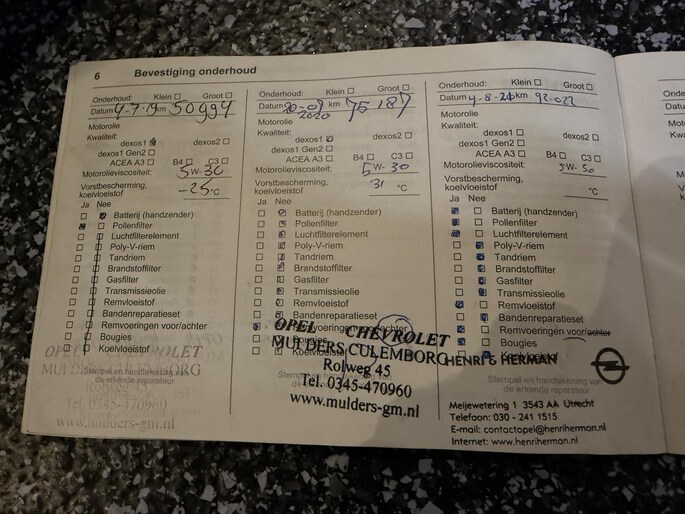 6 Bevestiging onderhoud
Onderhoud: Klein Groot
Datum 4-7-19 km 50994
Motorolie
Kwaliteit:
dexos1 dexos2
dexos1 Gen2
ACEA A3 B4 C3
Motorolieviscositeit: 5W-30
Vorstbescherming, koelvloeistof -25 °C
Ja Nee
Batterij (handzender)
Pollenfilter
Luchtfilterelement
Poly-V-riem
Tandriem
Brandstoffilter
Gasfilter
Transmissieolie
Remvloeistof
Bandenreparatieset
Remvoeringen voor/achter
Bougies
Koelvloeistof
Stempel en handtekening van
de erkende reparateur
OPEL CHEVROLET
MULDERS CULEMBORG
Rolweg 45
Tel. 0345-470960
www.mulders-gm.nl
Onderhoud: Klein Groot
Datum 20-07 2020 km 75187
Motorolie
Kwaliteit:
dexos1 dexos2
dexos1 Gen2
ACEA A3 B4 C3
Motorolieviscositeit: 5W-30
Vorstbescherming, koelvloeistof 31 °C
Ja Nee
Batterij (handzender)
Pollenfilter
Luchtfilterelement
Poly-V-riem
Tandriem
Brandstoffilter
Gasfilter
Transmissieolie
Remvloeistof
Bandenreparatieset
Remvoeringen voor/achter
Bougies
Koelvloeistof
OPEL CHEVROLET
MULDERS CULEMBORG
Rolweg 45
Tel. 0345-470960
www.mulders-gm.nl
Onderhoud: Klein Groot
Datum 4-8-21 km 92.022
Motorolie
Kwaliteit:
dexos1 dexos2
dexos1 Gen2
ACEA A3 B4 C3
Motorolieviscositeit: 5W-30
Vorstbescherming, koelvloeistof °C
Ja Nee
Batterij (handzender)
Pollenfilter
Luchtfilterelement
Poly-V-riem
Tandriem
Brandstoffilter
Gasfilter
Transmissieolie
Remvloeistof
Bandenreparatieset
Remvoeringen voor/achter
Bougies
Koelvloeistof
HENRI & HERMAN
Stempel en handtekening van
de erkende reparateur
Meijewetering 1 3543 AA Utrecht
Telefoon: 030 - 241 1515
E-mail: contactopel@henriherman.nl
Internet: www.henriherman.nl